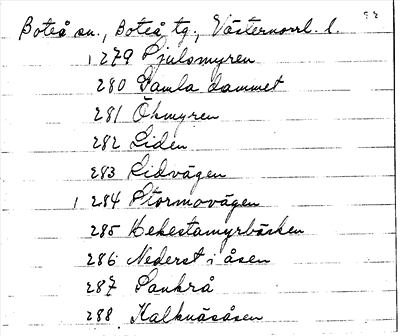 Boteå sn., Boteå tg., Västernorrl. l.
279 Pjulsmyren
280 Gamla dammet
281 Öhmyren
282 Liden
283 Lidvägen
284 Stormovägen
285 Hekestamyrbäcken
286 Nederst i åsen
287 Sankrå
288 Kalknäsåsen